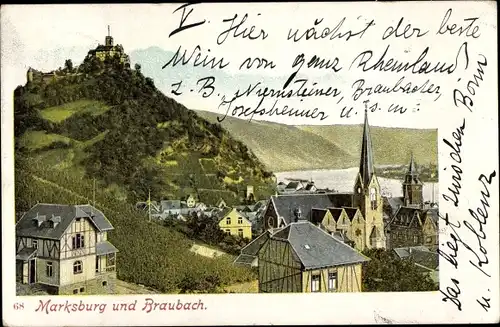 V
Hier nächst der beste
Wein von ganz Rheinland
z. B. Niersteiner, Braubacher,
Josefsheimer u. s. w.
das liegt zwischen Bonn
u. Koblenz
68 Marksburg und Braubach.